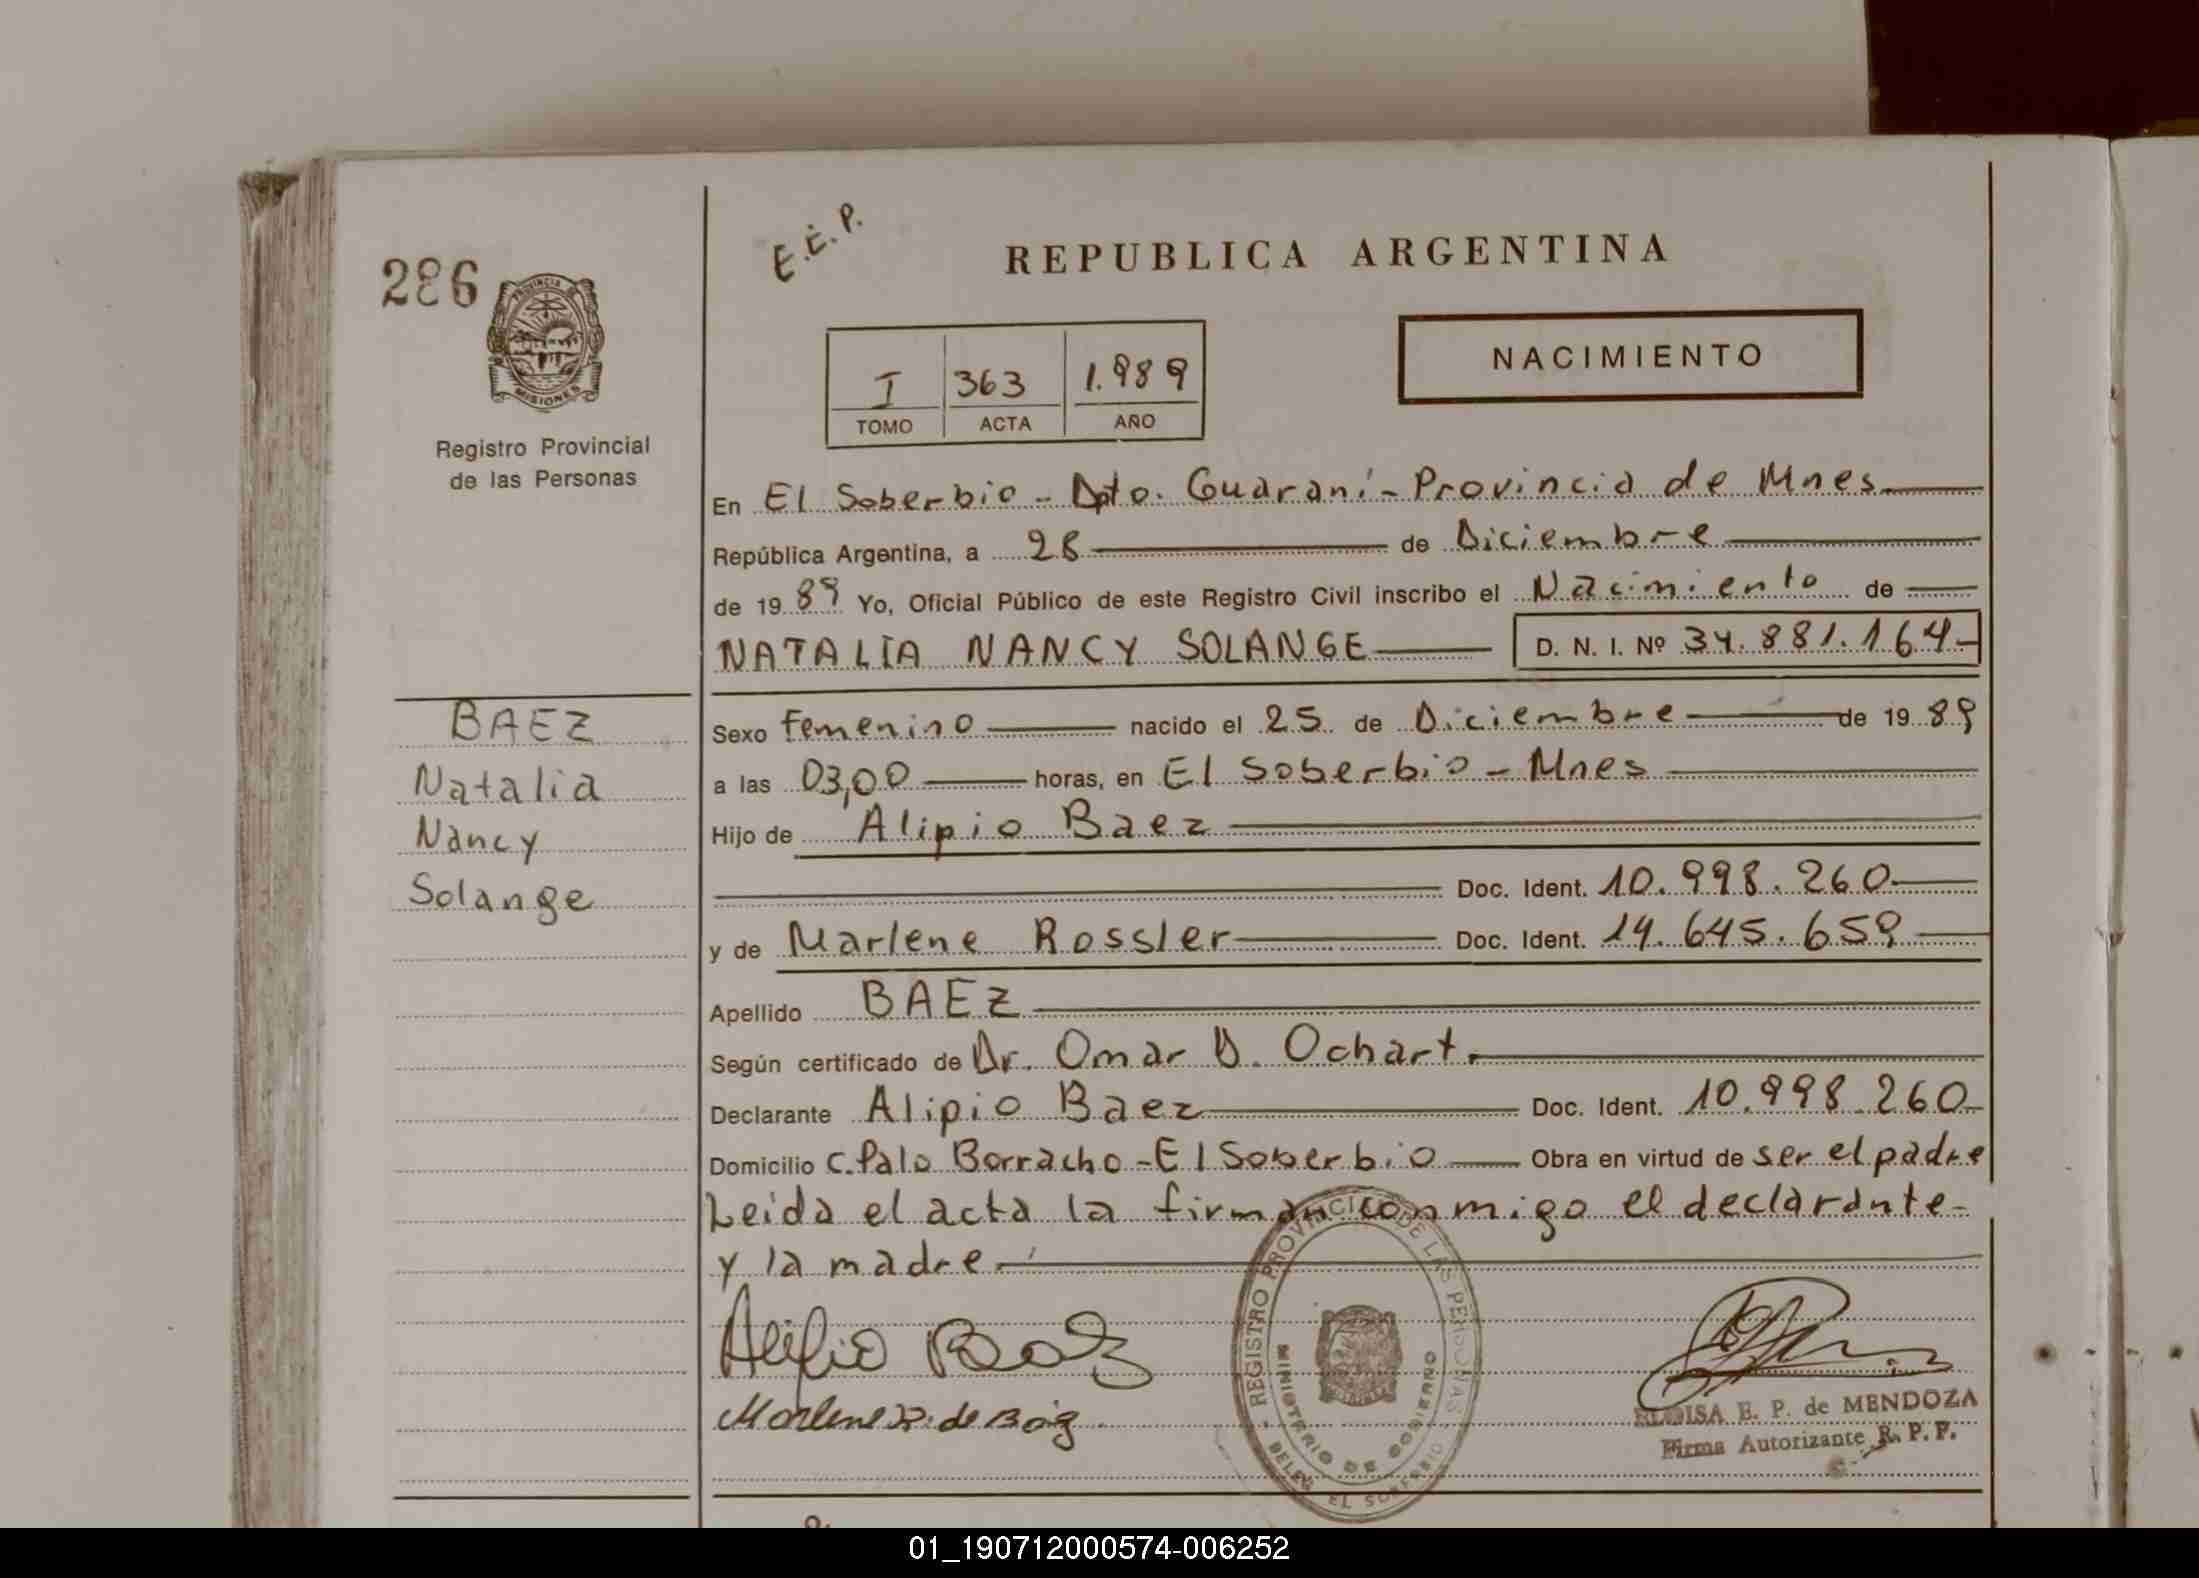 E.E.P.
REPUBLICA ARGENTINA
286
PROVINCIA DE
MISIONES
Registro Provincial
de las Personas
I 363 1.989
TOMO ACTA AÑO
NACIMIENTO
En El Soberbio - Dpto. Guaraní - Provincia de Mnes
República Argentina, a 28 de Diciembre
de 19 89 Yo, Oficial Público de este Registro Civil inscribo el Nacimiento de
NATALIA NANCY SOLANGE D. N. I. Nº 34.881.164-
BAEZ
Natalia
Nancy
Solange
Sexo femenino nacido el 25 de Diciembre de 19 89
a las 03,00 horas, en El Soberbio - Mnes
Hijo de Alipio Baez
Doc. Ident. 10.998.260
y de Marlene Rossler Doc. Ident. 14.645.659
Apellido BAEZ
Según certificado de Dr. Omar D. Ochart.
Declarante Alipio Baez Doc. Ident. 10.998.260
Domicilio C. Palo Borracho - El Soberbio Obra en virtud de ser el padre
Leida el acta la firman conmigo el declarante-
y la madre.
Alipio Baez
Marlene R. de Baez
REGISTRO PROVINCIAL DE LAS PERSONAS
MINISTERIO DE GOBIERNO
DELEG. EL SOBERBIO
ELOISA E. P. de MENDOZA
Firma Autorizante R. P. P.
01_190712000574-006252